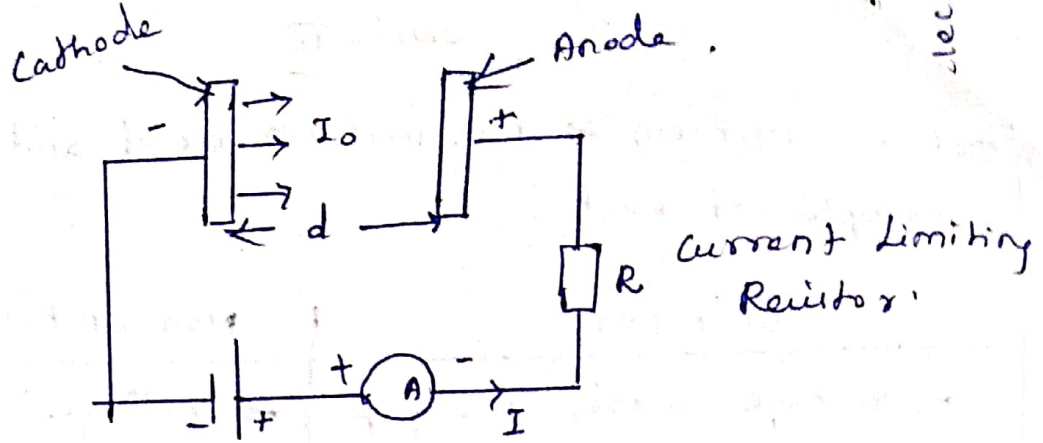 Cathode
Anode .
elec
- I₀ +
d
R
Current Limiting
Reistor.
+ A -
- + I